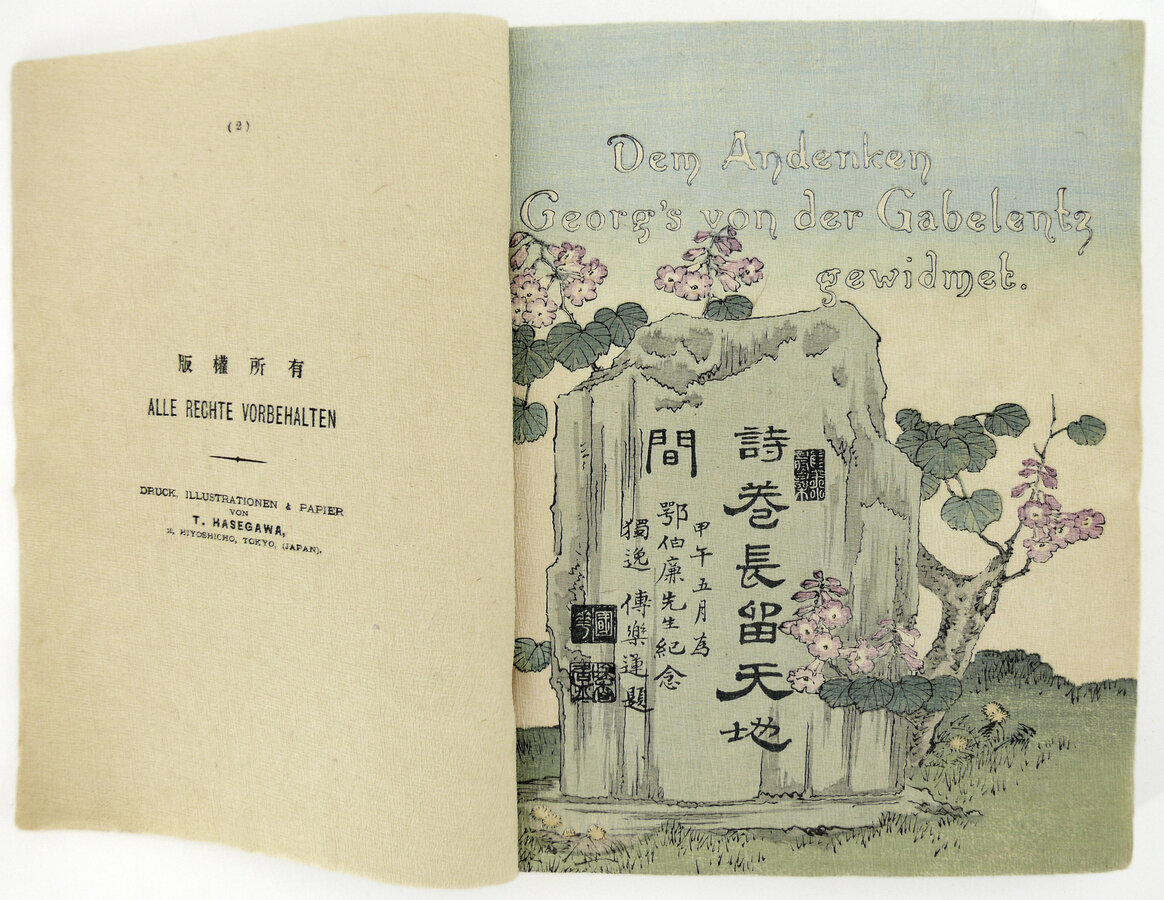 (2)
版權所有
ALLE RECHTE VORBEHALTEN
DRUCK, ILLUSTRATIONEN & PAPIER
VON
T. HASEGAWA,
HIYOSHICHO, TOKYO, (JAPAN).
Dem Andenken
Georg's von der Gabelentz
gewidmet.
詩巻長留天地
間
甲午五月為
鄂伯廉先生紀念
獨逸 傅樂運題